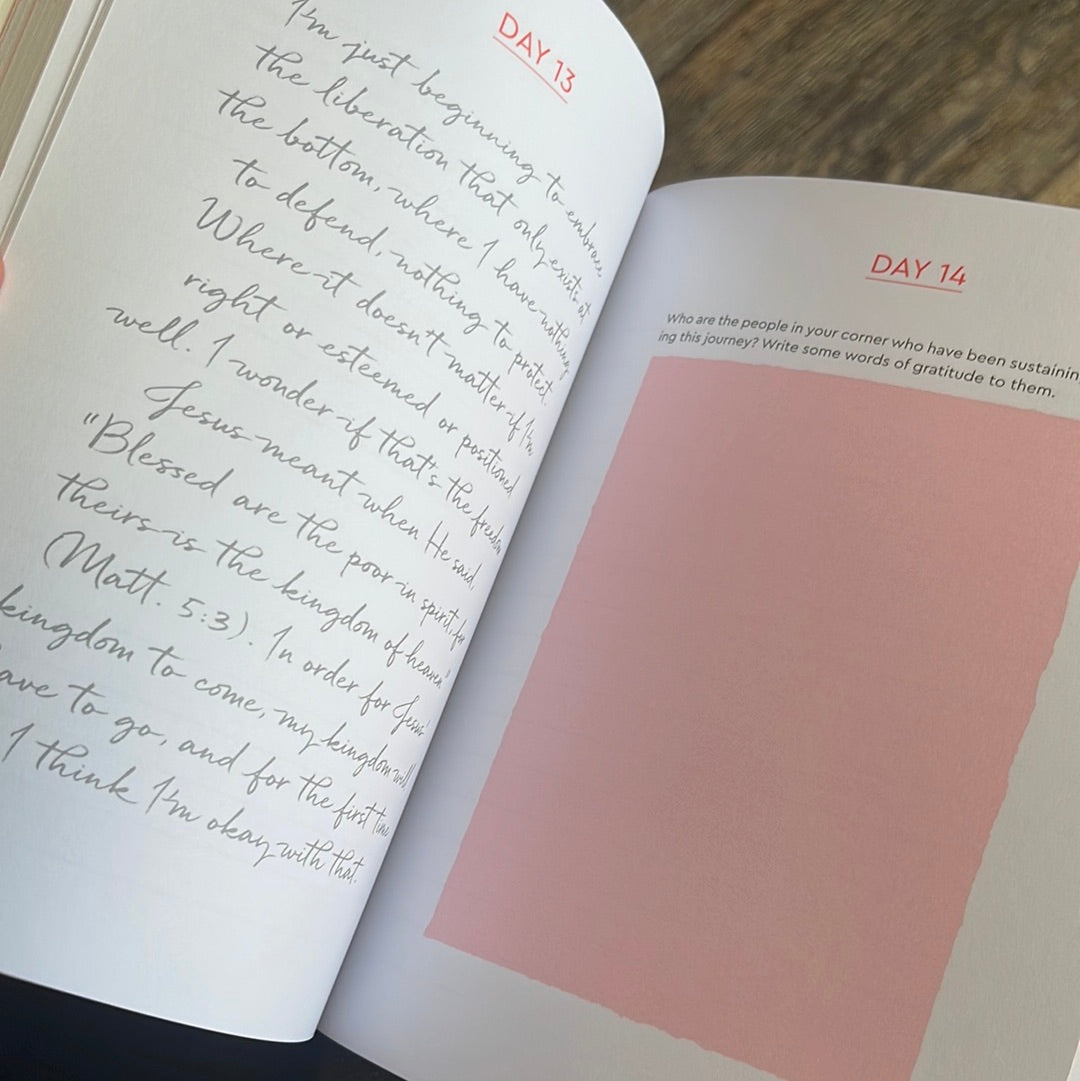 DAY 13
I'm just beginning to embrace
the liberation that only exists at
the bottom, where I have nothing
to defend, nothing to protect.
Where it doesn't matter if I'm
right or esteemed or positioned
well. I wonder if that's the freedom
Jesus meant when He said,
"Blessed are the poor in spirit, for
theirs is the kingdom of heaven"
(Matt. 5:3). In order for Jesus'
kingdom to come, my kingdom will
ave to go, and for the first time
I think I'm okay with that.
DAY 14
Who are the people in your corner who have been sustainin
ing this journey? Write some words of gratitude to them.